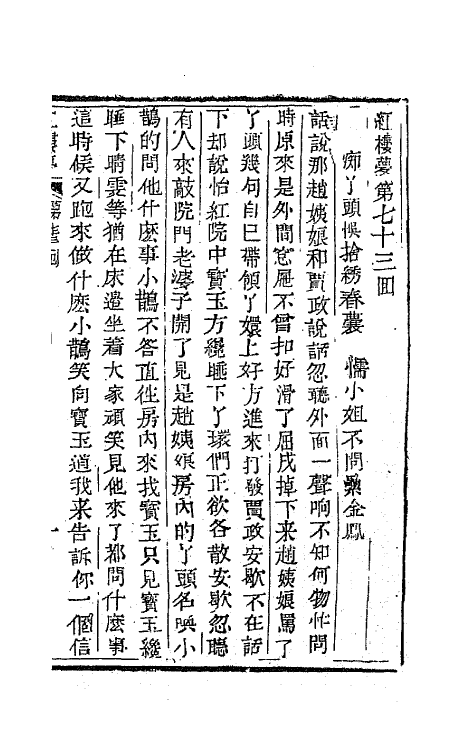 紅樓夢第七十三囬
痴丫頭悞拾綉春囊　懦小姐不問纍金鳳
話說那趙姨娘和賈政說話忽聽外面一聲响不知何物忙問
時原來是外間窓屜不曾扣好滑了屈戌掉下來趙姨娘罵了
丫頭幾句自己帶領丫嬛上好方進來打發賈政安歇不在話
下却說怡紅院中寳玉方纔睡下丫嬛們正欲各散安歇忽聽
有人來敲院門老婆子開了見是趙姨娘房內的丫頭名喚小
鵲的問他什麽事小鵲不答直徃房內來找寳玉只見寳玉纔
睡下晴雲等猶在床邉坐着大家頑笑見他來了都問什麽事
這時候又跑來做什麽小鵲笑向寳玉道我来告訴你一個信